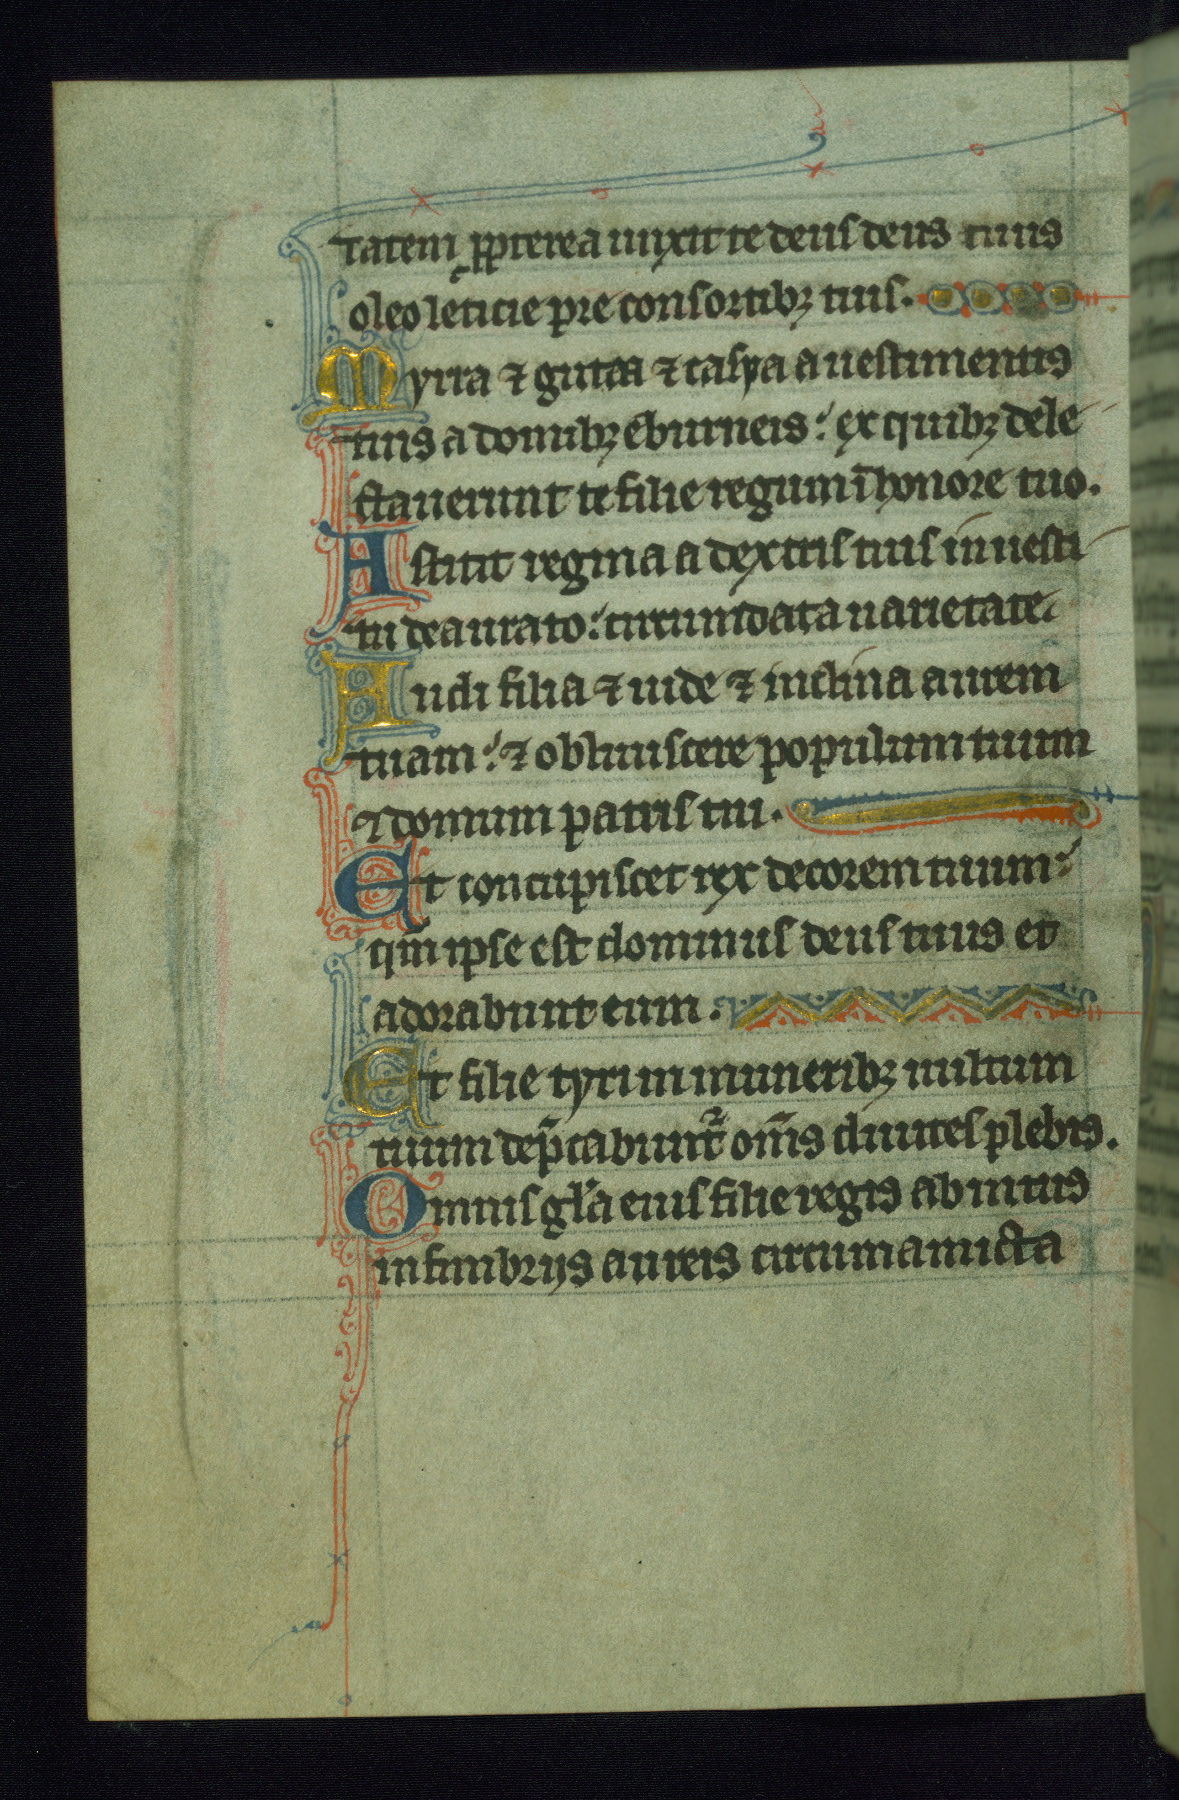 tatem ꝓpterea unxit te deus deus tuus
oleo leticie pre consortibꝫ tuis.
Myrra ⁊ gutta ⁊ casya a uestimentis
tuis a domibꝫ eburneis: ex quibꝫ dele
ctauerunt te filie regum ī honore tuo.
Astitit regina a dextris tuis in uesti
tu deaurato: circumdata uarietate.
Audi filia ⁊ uide ⁊ inclina aurem
tuam: ⁊ obliuiscere populum tuum
⁊ domum patris tui.
Et concupiscet rex decorem tuum:
qm̄ ipse est dominus deus tuus et
adorabunt eum.
Et filie tyri in muneribꝫ uultum
tuum dep̄cabunt᷑ om̄s diuites plebis.
Omnis gl̄a eius filie regis ab intus
in fimbrijs aureis circumamicta